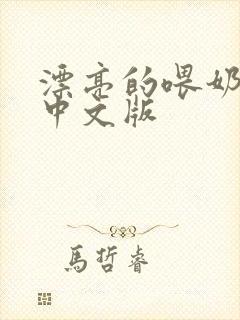 漂亮的喂奶
中文版
馬哲睿